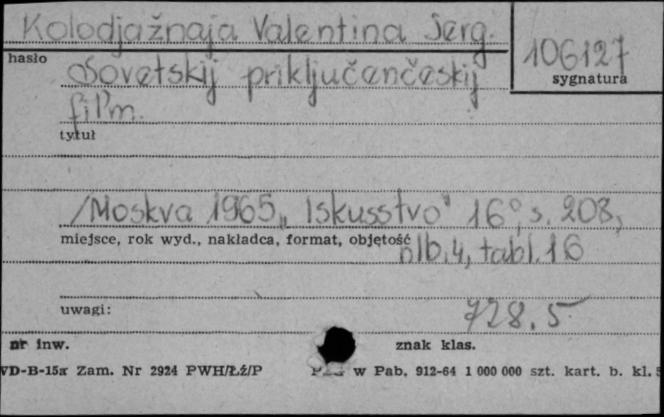 Kolodjažnaja Valentina Serg.
106127
hasło
sygnatura
Sovetskij priključenčeskij
film.
tytuł
/Moskva 1965 „Iskusstvo" 16°, s. 208,
miejsce, rok wyd., nakładca, format, objętość
nlb. 4, tabl. 16
uwagi:
728.5
nr inw.
znak klas.
VD-B-15a Zam. Nr 2924 PWH/Łż/P
w Pab. 912-64 1 000 000 szt. kart. b. kl. 5